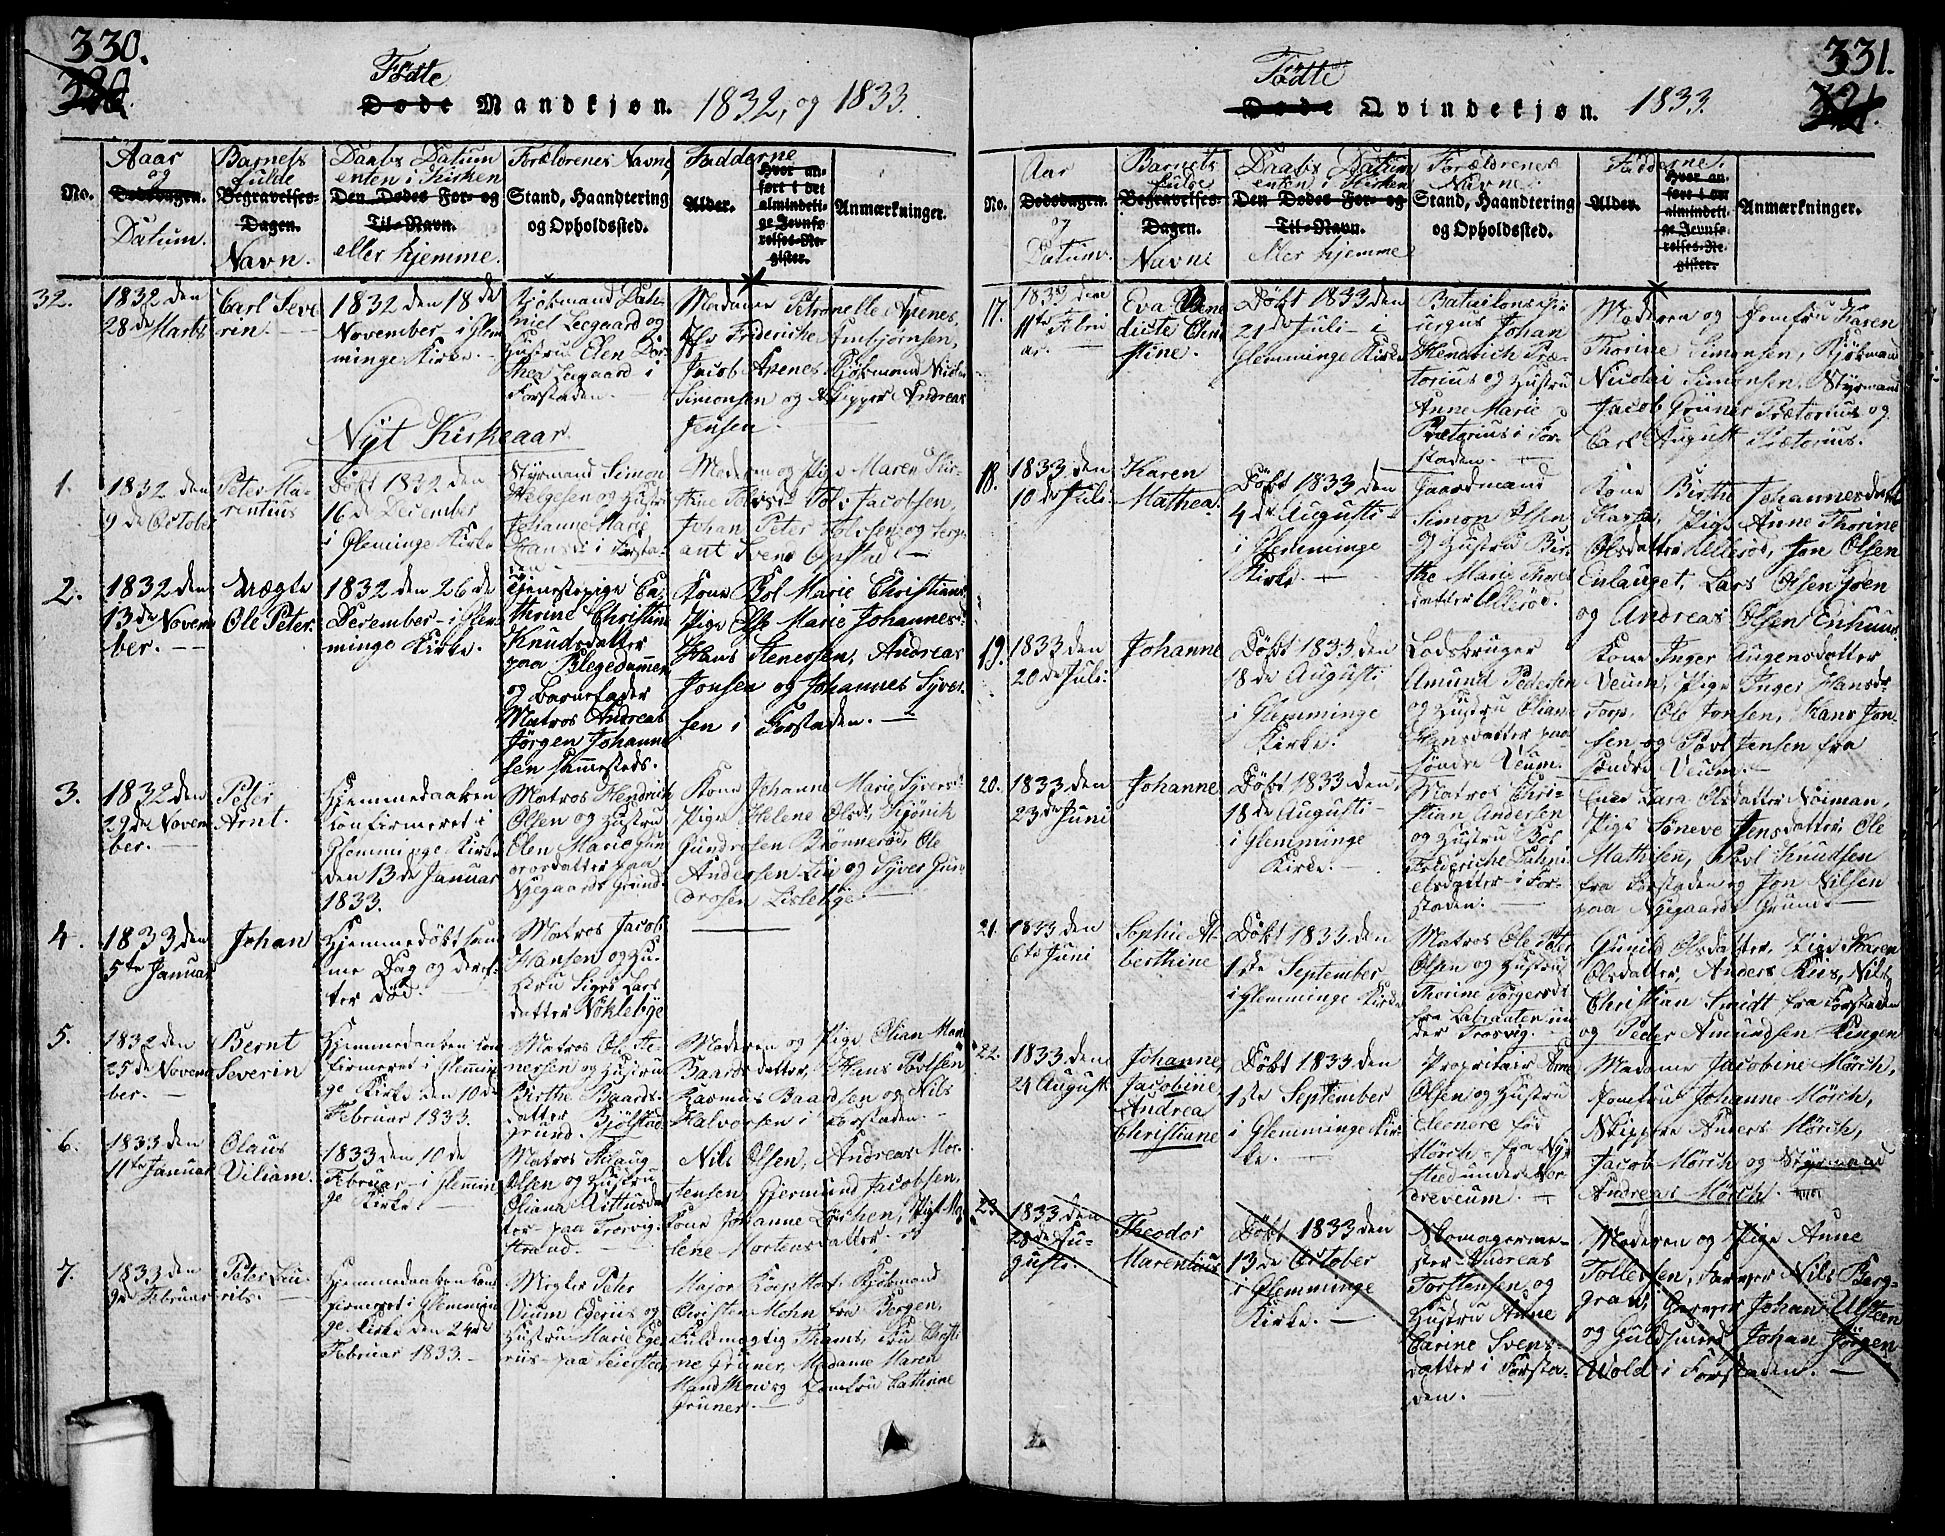 330.
320.
Fødte
Døde Mandkjøn. 1832, og 1833.
No.
Aaar
og
Dødsdagen.
Datum.
Barnets
fulde
Begravelses-
Dagen.
Navn.
Daabs Datum
enten i Kirken
Den Dødes For- og
Til-Navn.
eller hjemme.
Forældrenes Navne,
Stand, Haandtering
og Opholdssted.
Fadderne
Alder.
Hvor an-
ført i det
almindeli-
ge Jevnfø-
relses-Re-
gister.
Anmærkninger.
32.
1832 den
28de Marts
Carl Seve
rin.
1832 den 18de
November i Glem
minge Kirke.
Kjøbmand Dah-
niel Leegaard og
Hustru Elen Dor-
thea Leegaard i
Forstaden.
Madame Petronelle Apenes,
Jfr Friderikke Ambjørnsen,
Jacob Apenes Kjøbmand Nicolai
Simonsen og Skipper Andreas
Jensen.
Nyt Kirkeaar
1.
1832 den
9de October
Peter Ma-
rentius
Døbt 1832 den
16de December
i Gleminge Kirke
Styrmand Simon
Helgesen og Hustru
Johanne Marie
Hansd: i Forsta-
den
Moderen og Pige Maren Kir-
stine Jacobsen,
Johan Peter og Serg-
ant Svend
2.
1832 den
13de Novem
ber.
Uægte
Ole Peter.
1832 den 26de
December i Glem
minge Kirke.
Tjenestepige Ca-
thrine Christine
Knudsdatter
paa Blegedammen
og Barnefader
Matros Andreas
Jørgen Johanne
sen sammesteds.
Kone Bol Marie Christians
Pige Else Marie Johannes
Hans Stenersen, Andreas
Jonsen og Johannes Syver
sen i Forstaden.
3.
1832 den
29de Novem
ber.
Peter
Arnt.
Hjemmedaaben
Confirmeret i
Glemminge Kirke
den 13de Januar
1833.
Matros Hendrich
Olsen og Hustru
Olen Marie Gun
orosdatter paa
Nyegaards Grund
Kone Johanne Marie Syvers
Pige Helene Olsd:
Gundersen Brønnerød, Ole
Andersen Lie og Syver Gun
dersen Lislebye.
4.
1833 den
5te Januar
Johan
Hjemmedøbt sam
me Dag og deref-
ter død.
Matros Jacob
Hansen og Hu-
stru Siger Lars
datter Nøklebye
5.
1832 den
25de Novem
ber.
Bernt
Severin
Hjemmedaaben con
firmeret i Glemmin
ge Kirke den 10de
Februar 1833.
Matros Ole Ste-
nersen og Hustru
Birthe Baards-
datter Bjølstad
Grund.
Moderen og Pige Olian Mari
Baardsdatter, Hans Povlsen
Rasmus Baardsen og Nils
Halvorsen i Forstaden.
6.
1833 den
11te Januar
Olaus
Viliam.
1833 den 10de
Februar i Glemmin
ge Kirke.
Matros Aslaug
Olsen og Hustru
Oliana Kittilsdat
ter paa Trosvig
strand.
Nils Olsen, Andreas Mor-
tensen, Gjermund Jacobsen,
Kone Johanne Larsen, Pige Ma
lene Mortensdatter.
7.
1833 den
9de Februar
Peter Lau-
rits.
Hjemmedaaben con
firmeret i Glemmin
ge Kirke den 24de
Februar 1833.
Megler Peter
Vium Egeriis og
Hustru Marie Ege
riis paa Seiersten
Major Kjøbmand
Christen Mohn fra Bergen,
Fuldmægtig Thams, Fru Christi
ne Gruner, Madame Maren
og Jomfru Cathrine
Gruner.
331.
321.
Fødte
Døde Qvindekjøn. 1833.
No.
Aar
Dødsdagen.
og
Datum.
Barnets
fulde
Begravelses-
Dagen.
Navne
Daabs Datum
enten i Kirken
Den Dødes For- og
Til-Navn.
eller hjemme
Forældrenes
Navne.
Stand, Haandtering
og Opholdssted.
Fadderne.
Alder.
Hvor an-
ført i det
almindeli-
ge Jevnfø-
relses-Re-
gister.
Anmærkninger.
17.
1833 den
11te Febru
ar.
Eva Bene
dicte Chri
stine.
Døbt 1833 den
21de Juli i
Glemminge Kirke
Batailonschir
urgus Johan
Hendrich Præ-
torius og Hustru
Anne Marie
Prætorius i For-
staden.
Moderen og Jomfru Karen
Thorine Simonsen, Kjøbmand
Nicolai Simonsen, Styrmand
Jacob Gruner Prætorius og
Carl August Prætorius.
18.
1833 den
10de Juli
Karen
Mathea.
Døbt 1833 den
4de Augusti
i Glemminge
Kirke.
Gaardmand
Simon Olsen
og Hustru Bir-
the Marie Thores
datter Ullerød.
Kone Birthe Johannesdatter
Pige Anne Thorine
Olsdatter Lillerød, Jon Olsen
Enhauget, Lars Olsen
og Andreas Olsen Enhuus.
19.
1833 den
20de Juli.
Johanne
Døbt 1833 den
18de Augusti
i Glemminge
Kirke.
Lodsbruger
Amund Pedersen
og Hustru Oliana
Hansdatter paa
søndre Veum.
Kone Inger Augensdatter
Veum, Pige Inger Hansd:
Torp, Ole Jonsen, Hans Jon-
sen og Povl Jensen fra
søndre Veum.
20.
1833 den
23de Juni
Johanne
Døbt 1833 den
18de Augusti
i Glemminge
Kirke.
Matros Chri-
stian Andersen
og Hustru Bol
Friderikke Dahni-
elsdatter i For-
staden.
Enke Sara Olsdatter Noiman,
Pige Søneve Jensdatter, Ole
Mathisen, Povl Knudsen
fra Forstaden og Jon Nilsen
paa Nyegaards Grund
21.
1833 den
6te Juni
Sophie Al-
berthine
Døbt 1833 den
1ste September
i Glemminge Kirke
Matros Ole Peter
Olsen og Hustru
Thorine Torgersd:
fra Labranten un
der Trosvig.
Gunild Olsdatter, Pige Karen
Olsdatter, Anders Riis, Nils
Christian Smidt fra Forstaden
og Peder Amundsen Ringen
22.
1833 den
24 August
Johanne,
Jacobine,
Andrea
Christiane
Døbt 1833 den
1ste September
i Glemminge Kir-
ke.
Proprietair Arne
Olsen og Hustru
Eleonore fød
Mørch fra Ny
sted under Nor-
dreveum.
Madame Jacobine Mørch,
Jomfru Johanne Mørch,
Skipper Anders Mørch,
Jacob Mørch og Styrmand
Andreas Mørch.
23
1833 den
28de Au-
gusti.
Theodor
Marentius
Døbt 1833 den
13de October
i Glemminge
Kirke.
Skomagerme-
ster Andreas
Torstensen og
Hustru Anne
Carine Svens-
datter i Forsta-
den.
Moderen og Pige Anne
Tollefsen, Farver Nils Berg-
gran, Garver Johan Ulsteen
og Guldsmed Johan Jørgen
Wold i Forstaden.